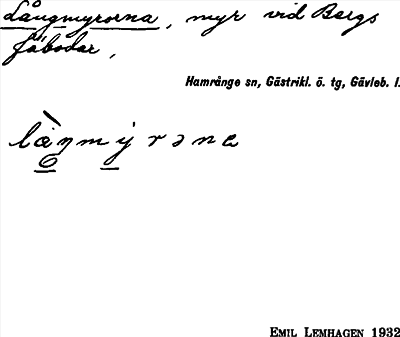 Långmyrorna, myr vid Bergs
fäbodar,
Hamrånge sn, Gästrikl. ö. tg, Gävleb. l.
là̱ŋmy̱rəna
EMIL LEMHAGEN 1932